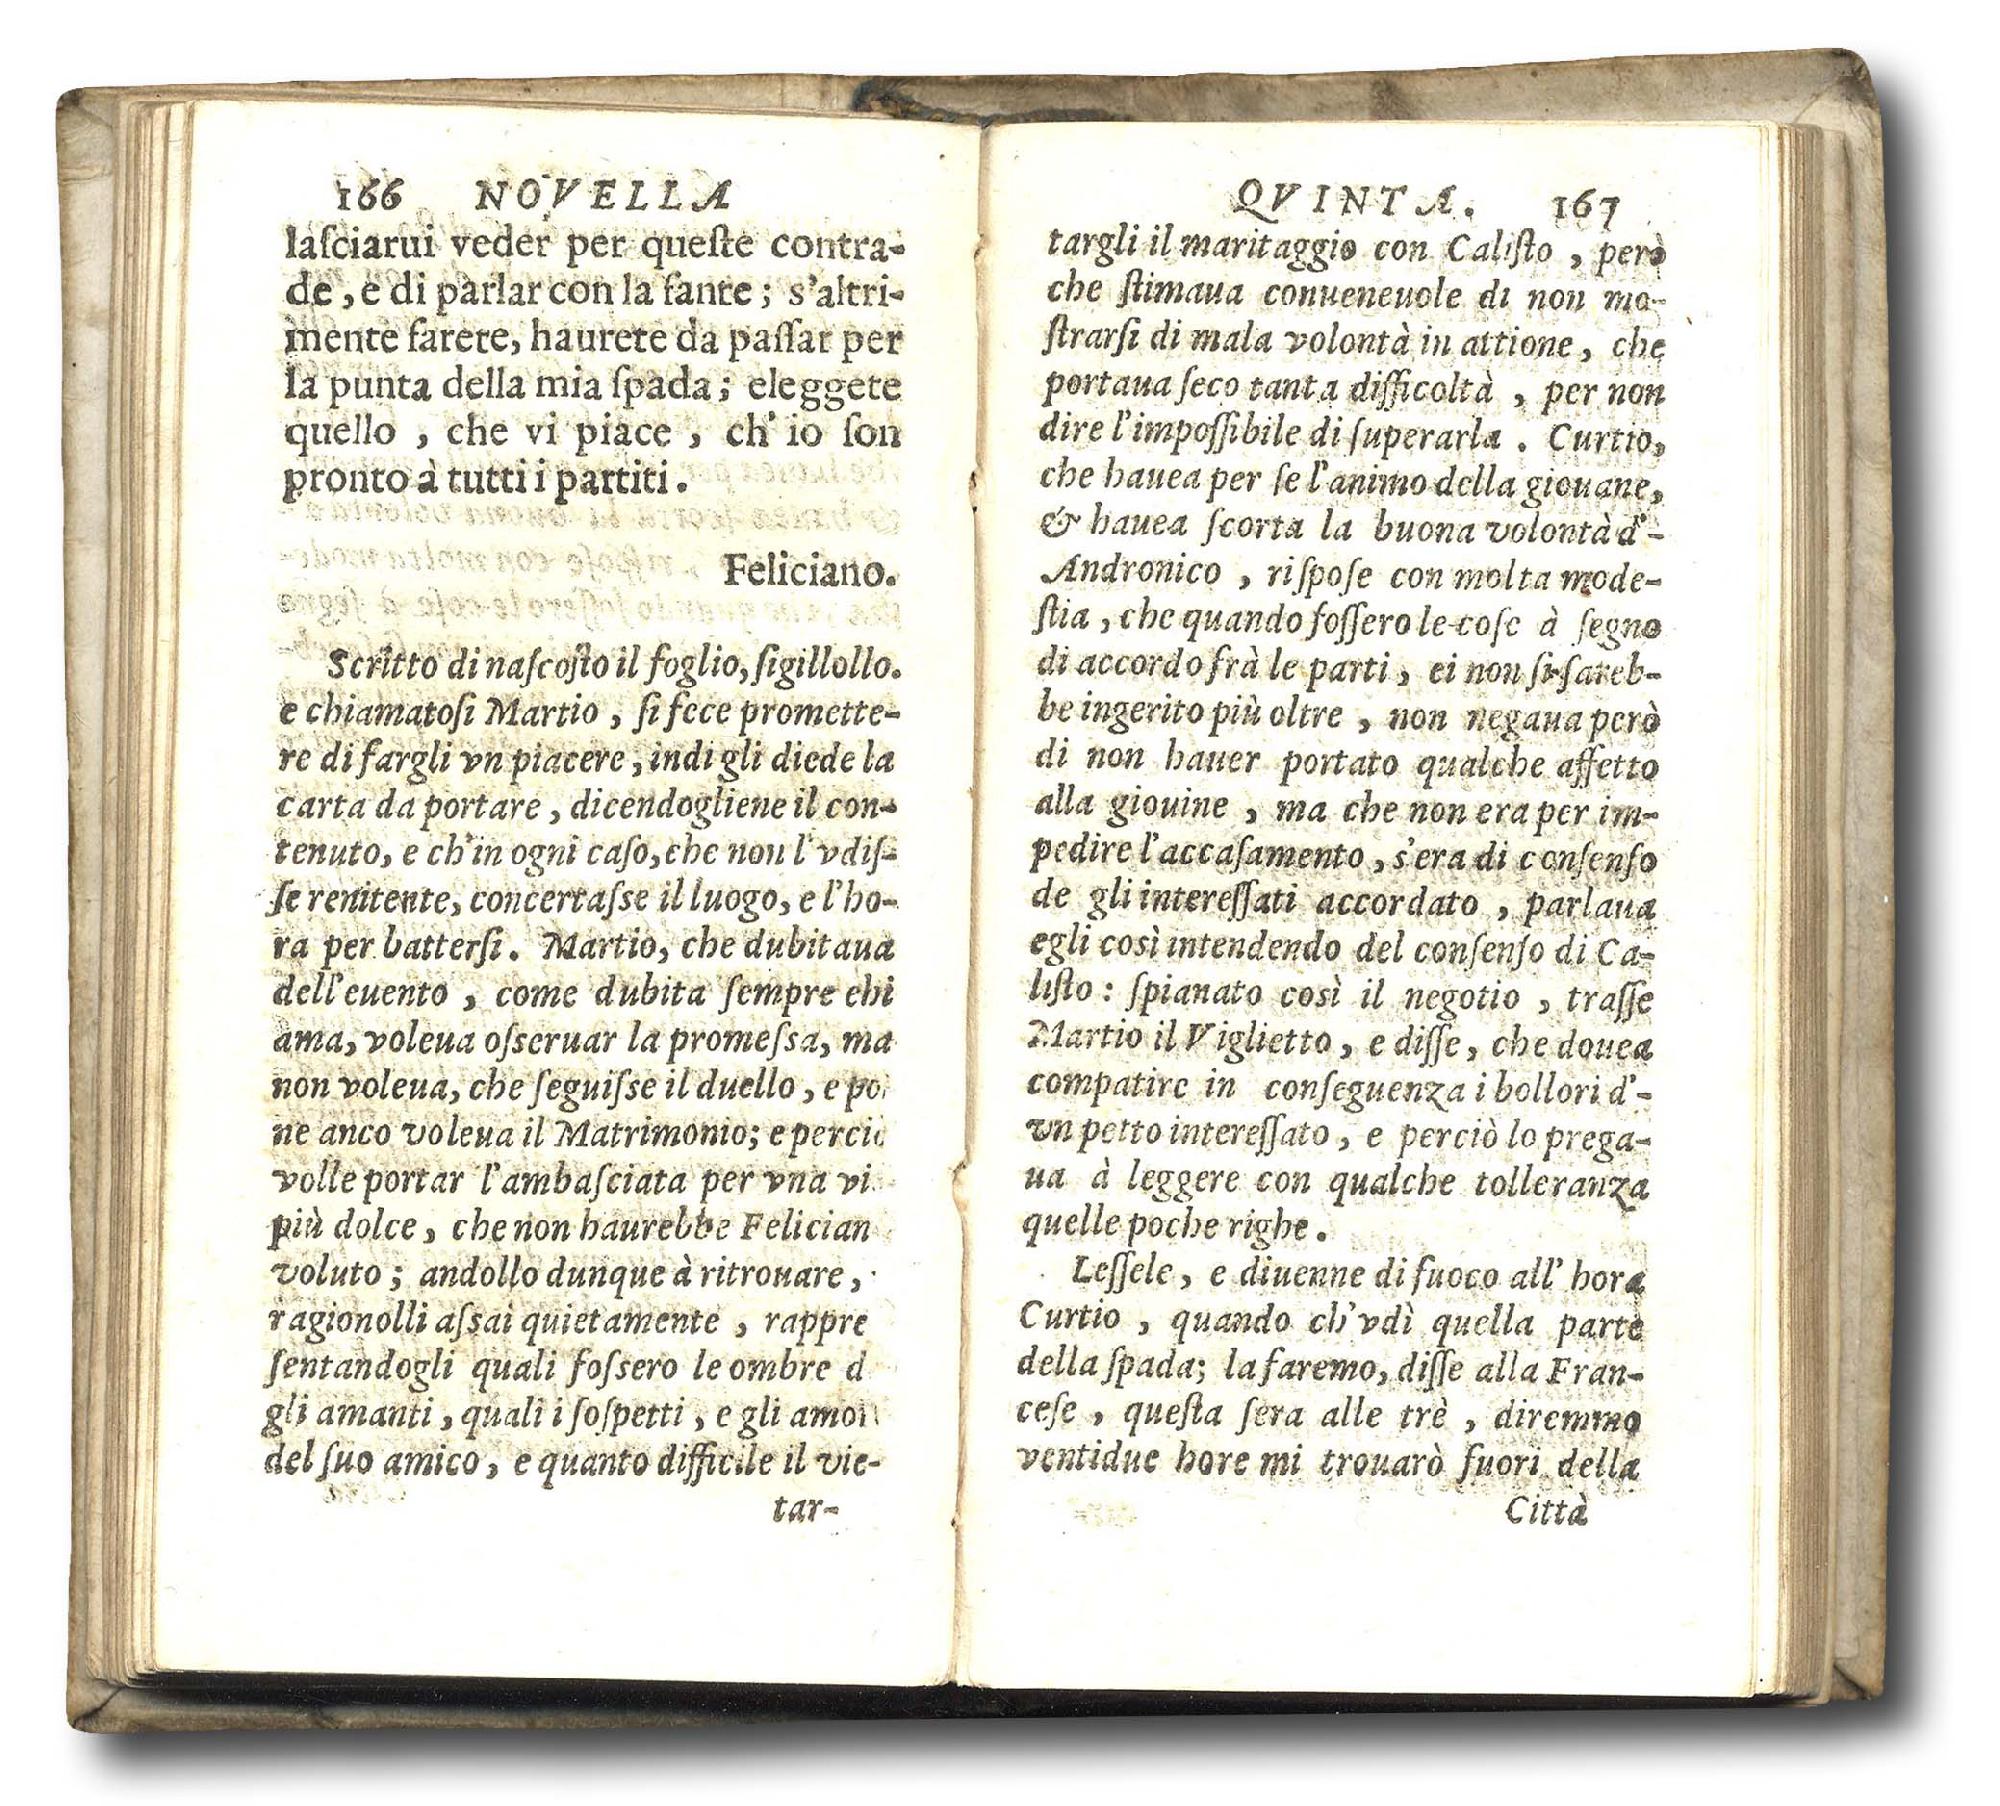 166 NOVELLA
laſciarui veder per queſte contra-
de, e di parlar con la fante; s'altri-
mente farete, haurete da paſſar per
la punta della mia ſpada; eleggete
quello, che vi piace, ch' io ſon
pronto à tutti i partiti.
Feliciano.
Scritto di naſcoſto il foglio, ſigillollo.
e chiamatoſi Martio, ſi fece promette-
re di fargli vn piacere, indi gli diede la
carta da portare, dicendogliene il con-
tenuto, e ch'in ogni caſo, che non l'vdiſ-
ſe renitente, concertaſse il luogo, e l'ho-
ra per batterſi. Martio, che dubitaua
dell'euento, come dubita ſempre chi
ama, voleua oſseruar la promeſsa, ma
non voleua, che ſeguiſse il duello, e po
ne anco voleua il Matrimonio; e perciò
volle portar l'ambaſciata per vna vi
più dolce, che non haurebbe Felician
voluto; andollo dunque à ritrouare,
ragionolli aſsai quietamente, rappre
ſentandogli quali foſsero le ombre d
gli amanti, quali i ſoſpetti, e gli amori
del ſuo amico, e quanto difficile il vie-
tar-
QVINTA. 167
targli il maritaggio con Caliſto, però
che ſtimaua conueneuole di non mo-
ſtrarſi di mala volontà in attione, che
portaua ſeco tanta difficoltà, per non
dire l'impoſſibile di ſuperarla. Curtio,
che hauea per ſe l'animo della giouane,
& hauea ſcorta la buona volontà d'-
Andronico, riſpoſe con molta mode-
ſtia, che quando foſſero le coſe à ſegno
di accordo frà le parti, ei non ſi ſareb-
be ingerito più oltre, non negaua però
di non hauer portato qualche affetto
alla giouine, ma che non era per im-
pedire l'accaſamento, s'era di conſenſo
de gli intereſſati accordato, parlaua
egli così intendendo del conſenſo di Ca-
liſto: ſpianato così il negotio, traſſe
Martio il Viglietto, e diſſe, che douea
compatire in conſeguenza i bollori d'-
vn petto intereſſato, e perciò lo prega-
ua à leggere con qualche tolleranza
quelle poche righe.
Leſſele, e diuenne di fuoco all' hora
Curtio, quando ch'vdì quella parte
della ſpada; la faremo, diſſe alla Fran-
ceſe, queſta ſera alle trè, diremmo
ventidue hore mi trouarò fuori della
Città